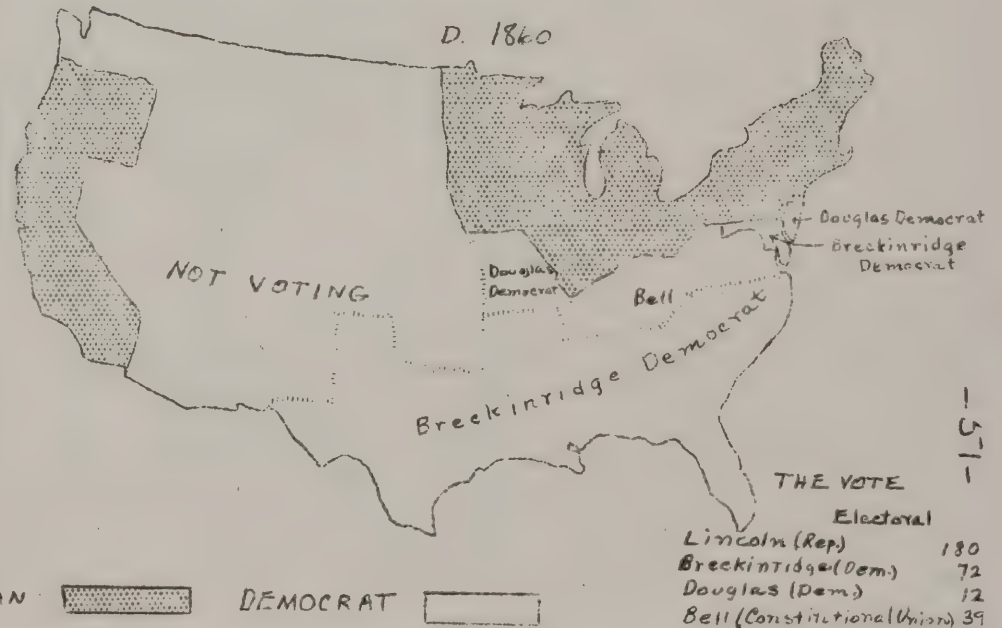 D. 1860
Douglas Democrat
Breckinridge
Democrat
NOT VOTING
Douglas
Democrat
Bell
Breckinridge Democrat
-57-
THE VOTE
Electoral
Lincoln (Rep.) 180
Breckinridge (Dem.) 72
Douglas (Dem.) 12
Bell (Constitutional Union) 39
AN DEMOCRAT